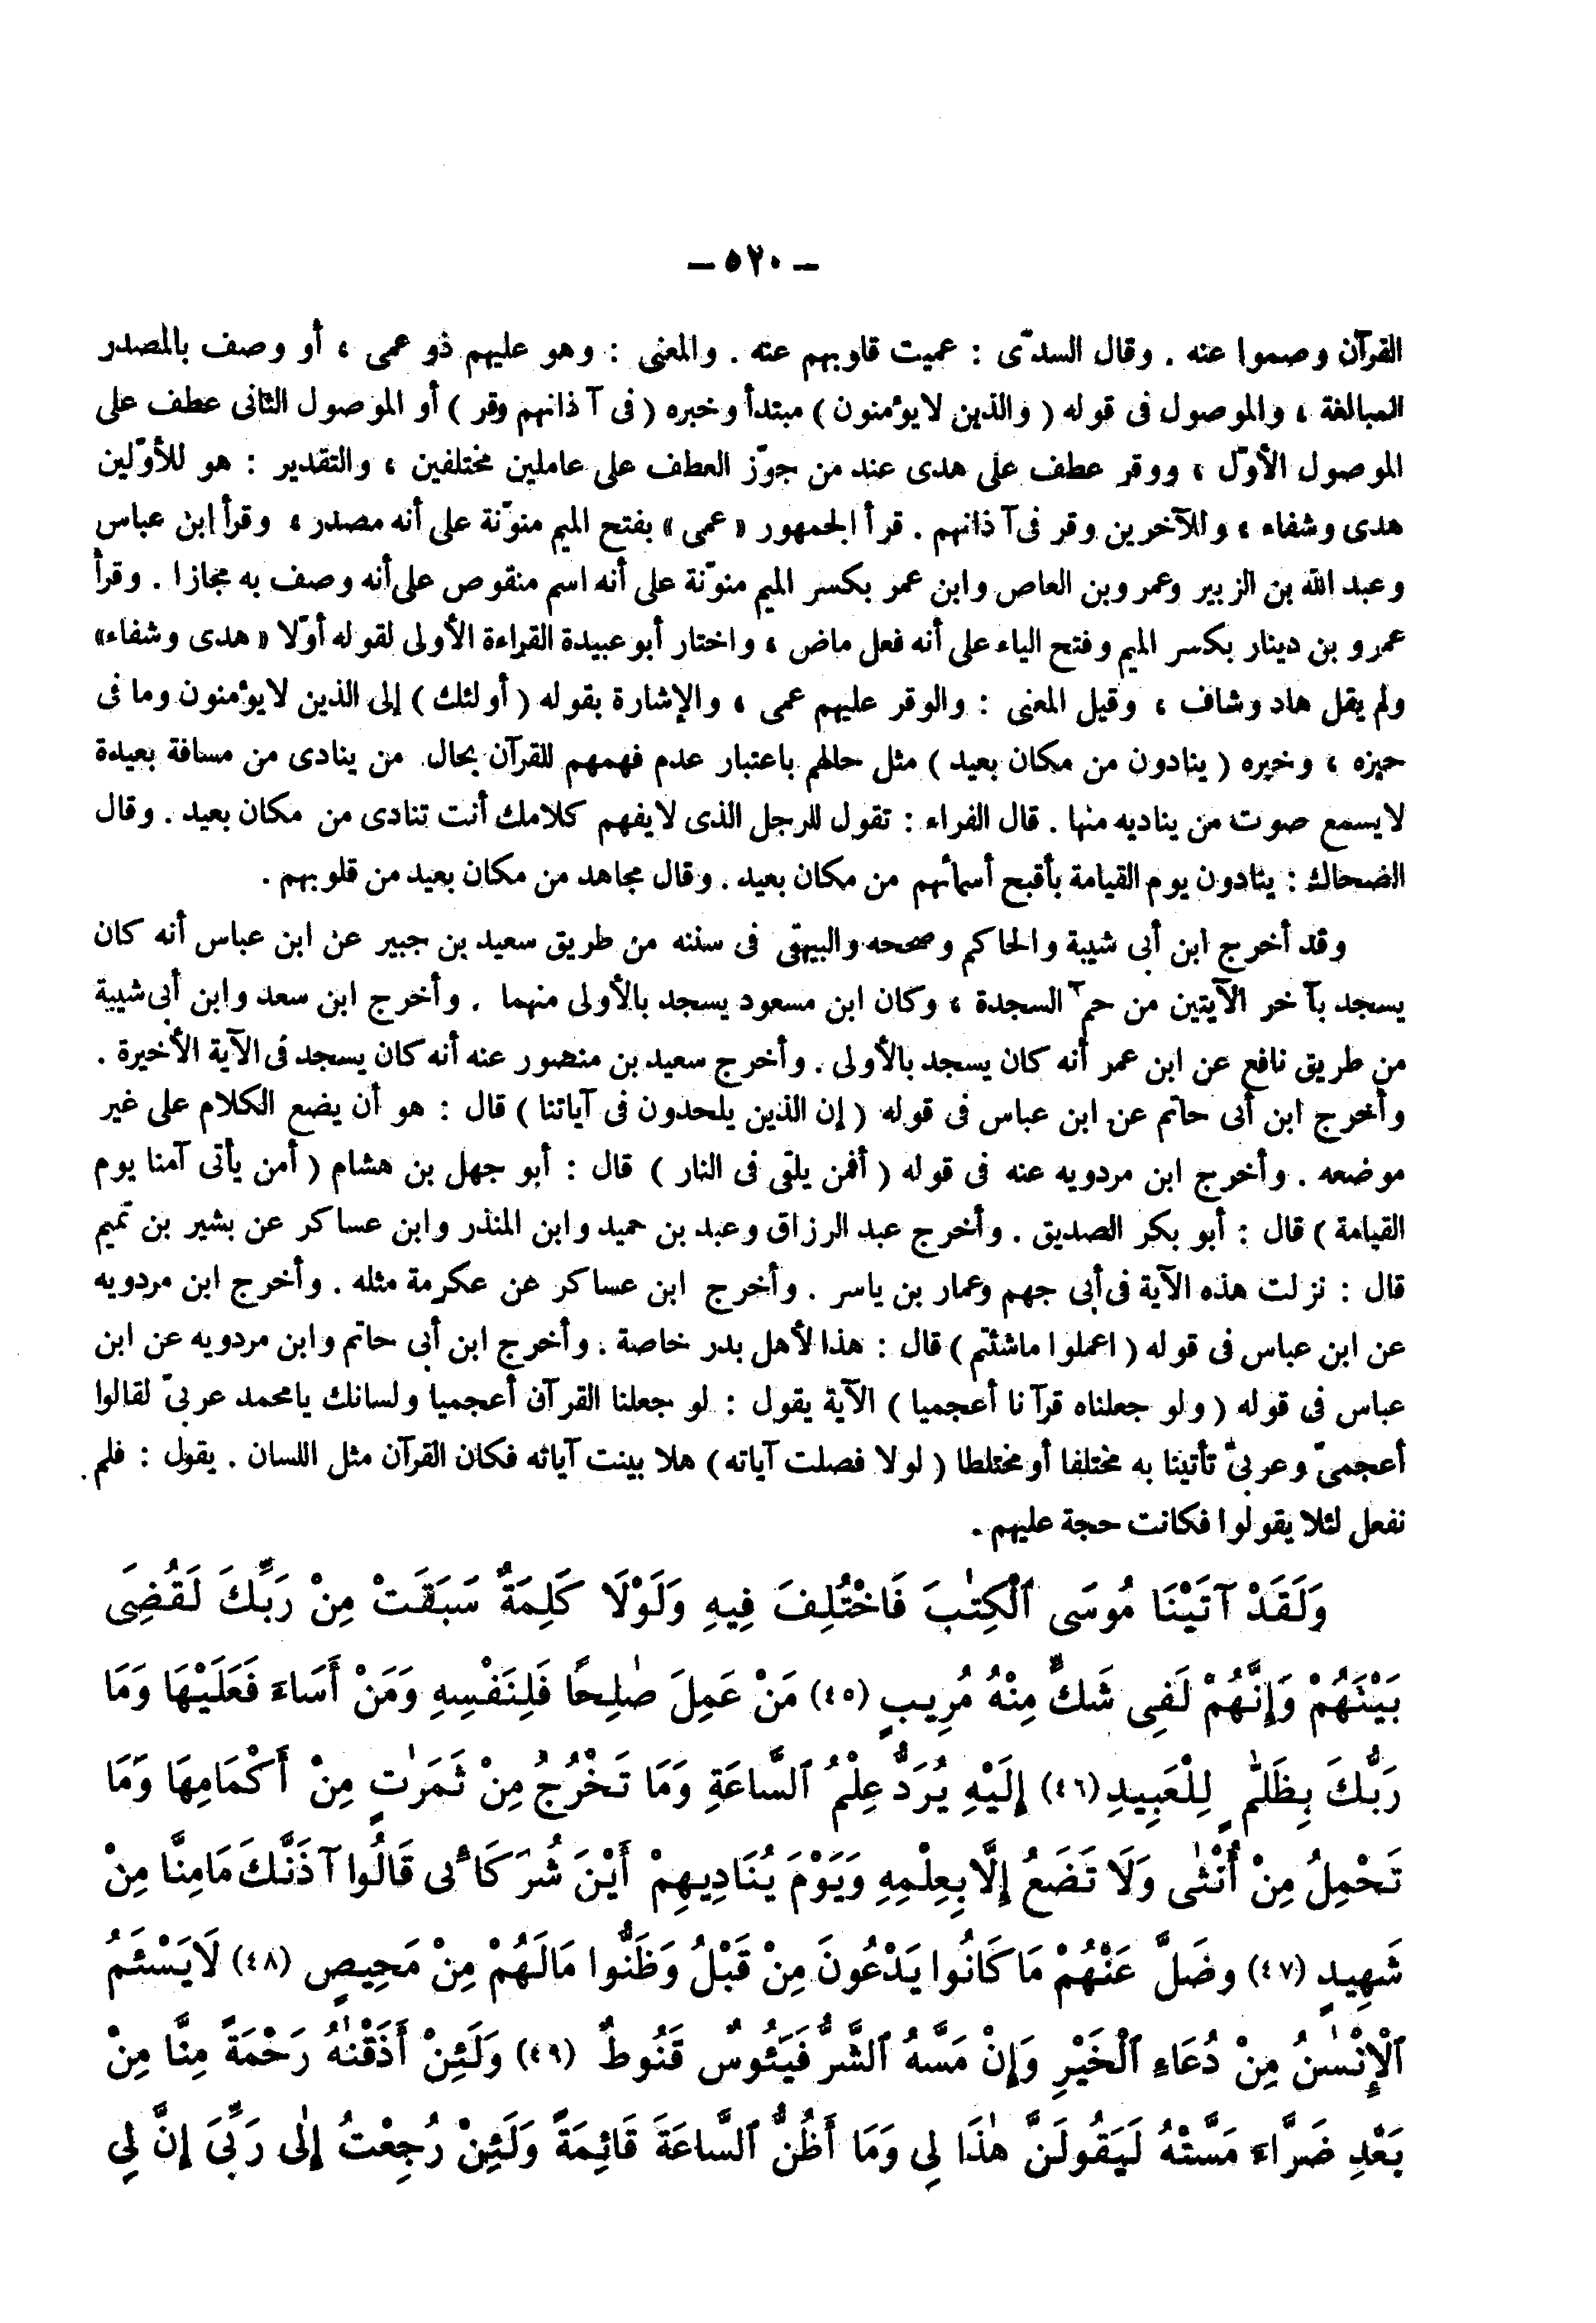 – ٥٢٠ –
القرآن وصموا عنه . وقال السدّى : عميت قلوبهم عنه . والمعنى : وهو عليهم ذو عمى ، أو وصف بالمصدر
للمبالغة ، والموصول فى قوله ( والذين لايؤمنون ) مبتدأ وخبره ( فى آذانهم وقر ) أو الموصول الثانى عطف على
الموصول الأوّل ، ووقر عطف على هدى عند من جوّز العطف على عاملين مختلفين ، والتقدير : هو للأوّلين
هدى وشفاء ، وللآخرين وقر فى آذانهم . قرأ الجمهور « عمى » بفتح الميم منوّنة على أنه مصدر ، وقرأ ابن عباس
وعبد الله بن الزبير وعمرو بن العاص وابن عمر بكسر الميم منوّنة على أنه اسم منقوص على أنه وصف به مجازا . وقرأ
عمرو بن دينار بكسر الميم وفتح الياء على أنه فعل ماض ، واختار أبو عبيدة القراءة الأولى لقوله أوّلا « هدى وشفاء »
ولم يقل هاد وشاف ، وقيل المعنى : والوقر عليهم عمى ، والإشارة بقوله ( أولئك ) إلى الذين لايؤمنون وما فى
حيزه ، وخبره ( ينادون من مكان بعيد ) مثل حالهم باعتبار عدم فهمهم للقرآن بحال من ينادى من مسافة بعيدة
لايسمع صوت من يناديه منها . قال الفراء : تقول للرجل الذى لايفهم كلامك أنت تنادى من مكان بعيد . وقال
الضحاك : ينادون يوم القيامة بأقبح أسمائهم من مكان بعيد . وقال مجاهد من مكان بعيد من قلوبهم .
وقد أخرج ابن أبى شيبة والحاكم وصححه والبيهقى فى سننه من طريق سعيد بن جبير عن ابن عباس أنه كان
يسجد بآخر الآيتين من حمۤ السجدة ، وكان ابن مسعود يسجد بالأولى منهما . وأخرج ابن سعد وابن أبى شيبة
من طريق نافع عن ابن عمر أنه كان يسجد بالأولى . وأخرج سعيد بن منصور عنه أنه كان يسجد فى الآية الأخيرة .
وأخرج ابن أبى حاتم عن ابن عباس فى قوله ( إن الذين يلحدون فى آياتنا ) قال : هو أن يضع الكلام على غير
موضعه . وأخرج ابن مردويه عنه فى قوله ( أفمن يلقى فى النار ) قال : أبو جهل بن هشام ( أمن يأتى آمنا يوم
القيامة ) قال : أبو بكر الصديق . وأخرج عبد الرزاق وعبد بن حميد وابن المنذر وابن عساكر عن بشير بن تميم
قال : نزلت هذه الآية فى أبى جهم وعمار بن ياسر . وأخرج ابن عساكر عن عكرمة مثله . وأخرج ابن مردويه
عن ابن عباس فى قوله ( اعملوا ماشئتم ) قال : هذا لأهل بدر خاصة . وأخرج ابن أبى حاتم وابن مردويه عن ابن
عباس فى قوله ( ولو جعلناه قرآنا أعجميا ) الآية يقول : لو جعلنا القرآن أعجميا ولسانك يامحمد عربىّ لقالوا
أعجمىّ وعربىّ تأتينا به مختلفا أو مختلطا ( لولا فصلت آياته ) هلا بينت آياته فكان القرآن مثل اللسان . يقول : فلم
نفعل لئلا يقولوا فكانت حجة عليهم .
وَلَقَدْ آتَيْنَا مُوسَى ٱلْكِتٰبَ فَاخْتُلِفَ فِيهِ وَلَوْلَا كَلِمَةٌ سَبَقَتْ مِنْ رَبِّكَ لَقُضِىَ
بَيْنَهُمْ وَإِنَّهُمْ لَفِى شَكٍّ مِنْهُ مُرِيبٍ (٤٥) مَنْ عَمِلَ صٰلِحًا فَلِنَفْسِهِ وَمَنْ أَسَاءَ فَعَلَيْهَا وَمَا
رَبُّكَ بِظَلّٰمٍ لِلْعَبِيدِ (٤٦) إِلَيْهِ يُرَدُّ عِلْمُ ٱلسَّاعَةِ وَمَا تَخْرُجُ مِنْ ثَمَرٰتٍ مِنْ أَكْمَامِهَا وَمَا
تَحْمِلُ مِنْ أُنْثٰى وَلَا تَضَعُ إِلَّا بِعِلْمِهِ وَيَوْمَ يُنَادِيهِمْ أَيْنَ شُرَكَائِى قَالُوا آذَنَّكَ مَامِنَّا مِنْ
شَهِيدٍ (٤٧) وضَلَّ عَنْهُمْ مَا كَانُوا يَدْعُونَ مِنْ قَبْلُ وَظَنُّوا مَالَهُمْ مِنْ مَحِيصٍ (٤٨) لَايَسْئَمُ
ٱلْإِنْسٰنُ مِنْ دُعَاءِ ٱلْخَيْرِ وَإِنْ مَسَّهُ ٱلشَّرُّ فَيَئُوسٌ قَنُوطٌ (٤٩) وَلَئِنْ أَذَقْنٰهُ رَحْمَةً مِنَّا مِنْ
بَعْدِ ضَرَّاءَ مَسَّتْهُ لَيَقُولَنَّ هٰذَا لِى وَمَا أَظُنُّ ٱلسَّاعَةَ قَائِمَةً وَلَئِنْ رُجِعْتُ إِلٰى رَبِّىَ إِنَّ لِى